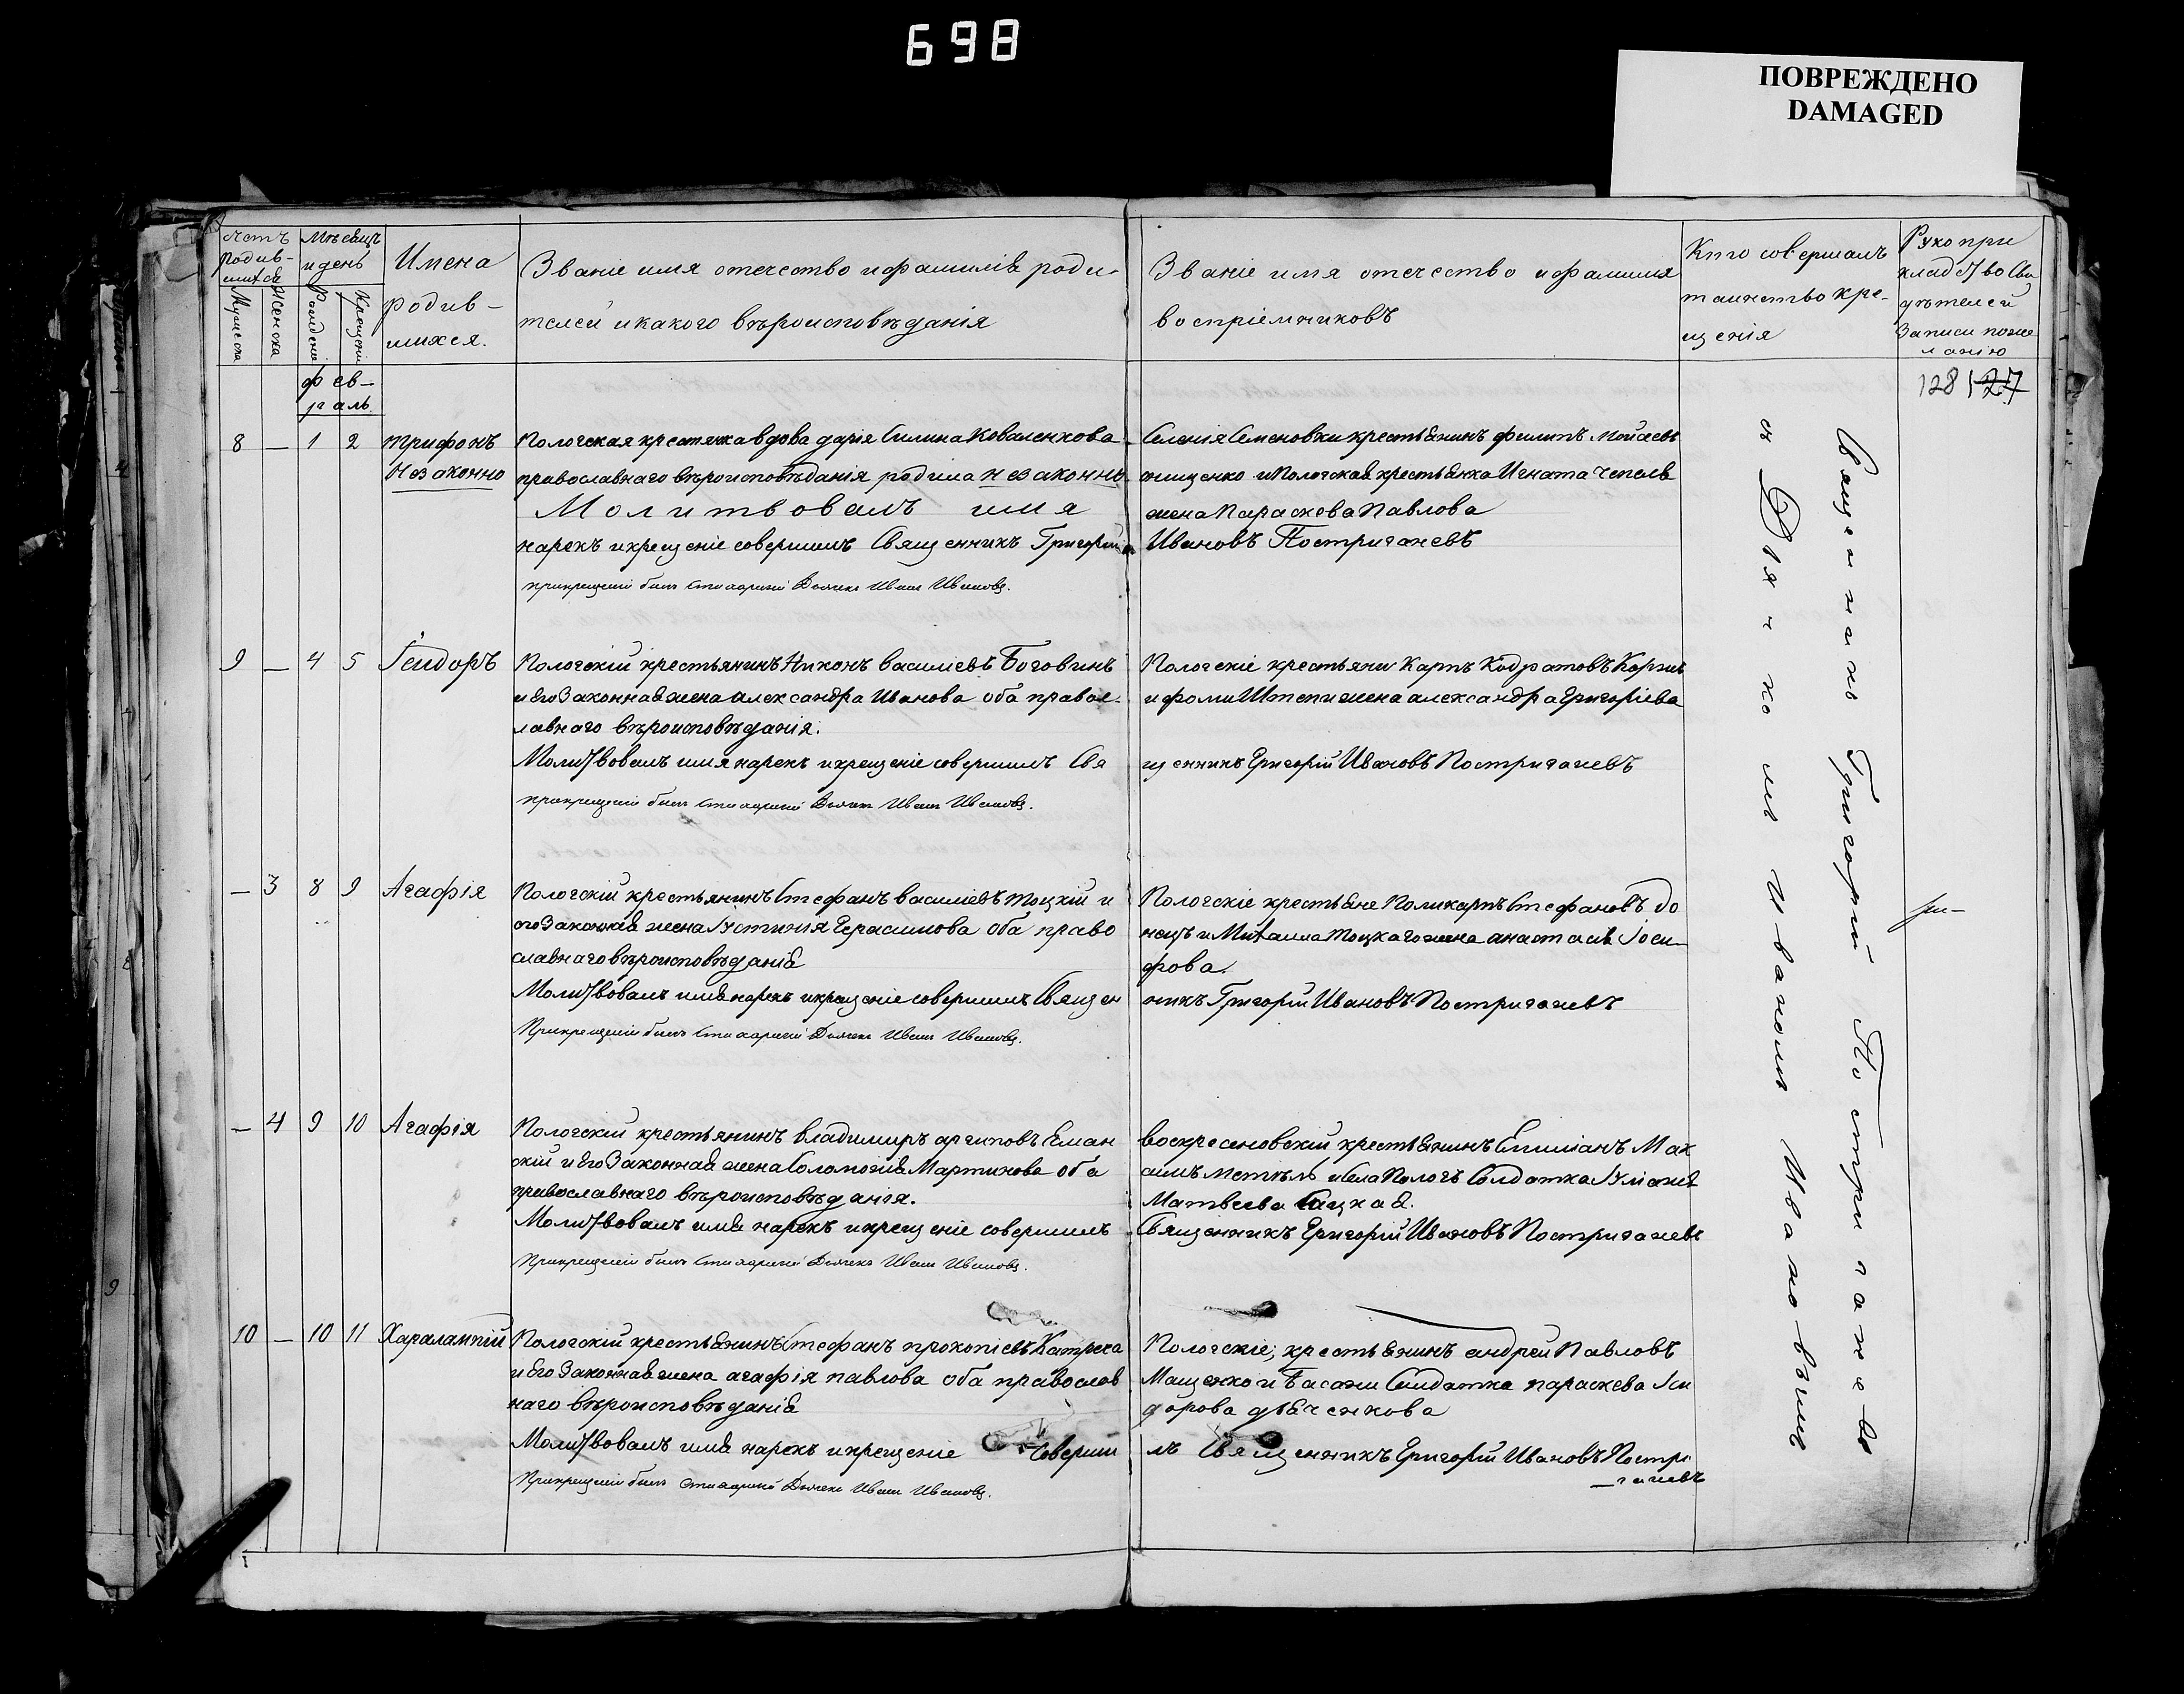 698
ПОВРЕЖДЕНО
DAMAGED
Счетъ родив-шихся
Мужеска
Женска
Мѣсяцъ и день
Рожденія
Крещенія
Имена родив-шихся.
Званіе имя отечество и фамилія роди-
телей и какого вѣроисповѣданія
Званіе имя отечество и фамилия
воспріемниковъ
Кто совершалъ
таинство кре-
щенія
Рукопри
кладство сви
дѣтелей
записи поже
ланію
128 127
фев-
раль
8 — 1 2 Трифонъ
Незаконно
Пологская крестянка вдова дарія Силина Коваленкова
православнаго вѣроисповѣданія родила незаконно
Молитвовалъ имя
нарекъ и крещеніе совершилъ Священникъ Григорий
при крещеніи былъ стихарный Дьячекъ Иванъ Ивановъ.
Селенія Семеновки крестьянинъ филипъ Мойсеевъ
онищенко и Пологская крестьянка Игната чепеля
жена Параскева Павлова
Ивановъ Постригачевъ
9 — 4 5 Ісидоръ
Пологскій крестьянинъ Никонъ василіевъ Боговинъ
и его законная жена александра Иванова оба правос-
лавнаго вѣроисповѣданія.
Молитвовалъ имя нарекъ и крещеніе совершилъ Свя
при крещеніи былъ стихарный Дьячекъ Иванъ Ивановъ.
Пологскіе крестьяни Карпъ Кодратовъ Коржъ
и фоми Штепи жена александра Григоріева
щенникъ Григорій Ивановъ Постригачевъ
— 3 8 9 Агафія
Пологскій крестьянинъ Стефанъ василіевъ тоцкій и
его законная жена Іустинія Герасимова оба право
славнаго вѣроисповѣданія
Молитвовалъ имя нарекъ и крещеніе совершилъ Священ
При крещеніи былъ стихарный Дьячекъ Иванъ Ивановъ.
Пологскіе крестьяне Поликарпъ Стефановъ до
нецъ и Михаила тоцкаго жена анастасія Іоси-
фова.
никъ Григорій Ивановъ Постригачевъ
— 4 9 10 Агафія
Пологскій крестьянинъ владимиръ архиповъ Еман
скій и его законная жена Соломонія Мартинова оба
православнаго вѣроисповѣданія.
Молитвовалъ имя нарекъ и крещеніе совершилъ
При крещеніи былъ стихарный Дьячекъ Иванъ Ивановъ.
воскресеновскій крестьянинъ Епиміанъ Мак
симъ и села Пологъ Солдатка Іуліанія
Матвеева Сацкая.
Священникъ Григорій Ивановъ Постригачевъ
10 — 10 11 Харалампій
Пологскій крестьянинъ Стефанъ прокопіевъ Катреча
и его законная жена агафія павлова оба православ
наго вѣроисповѣданія
Молитвовалъ имя нарекъ и крещеніе соверши
При крещеніи былъ стихарный Дьячекъ Иванъ Ивановъ.
Пологскіе, крестьянинъ андрей Павловъ
Мащенко и Басани Солдатка параскева Іси
дорова дьяченкова
лъ Священникъ Григорій Ивановъ Постри
гачевъ
Священникъ Григорий Постригачевъ
съ Дячкомъ Иваномъ Ивановымъ